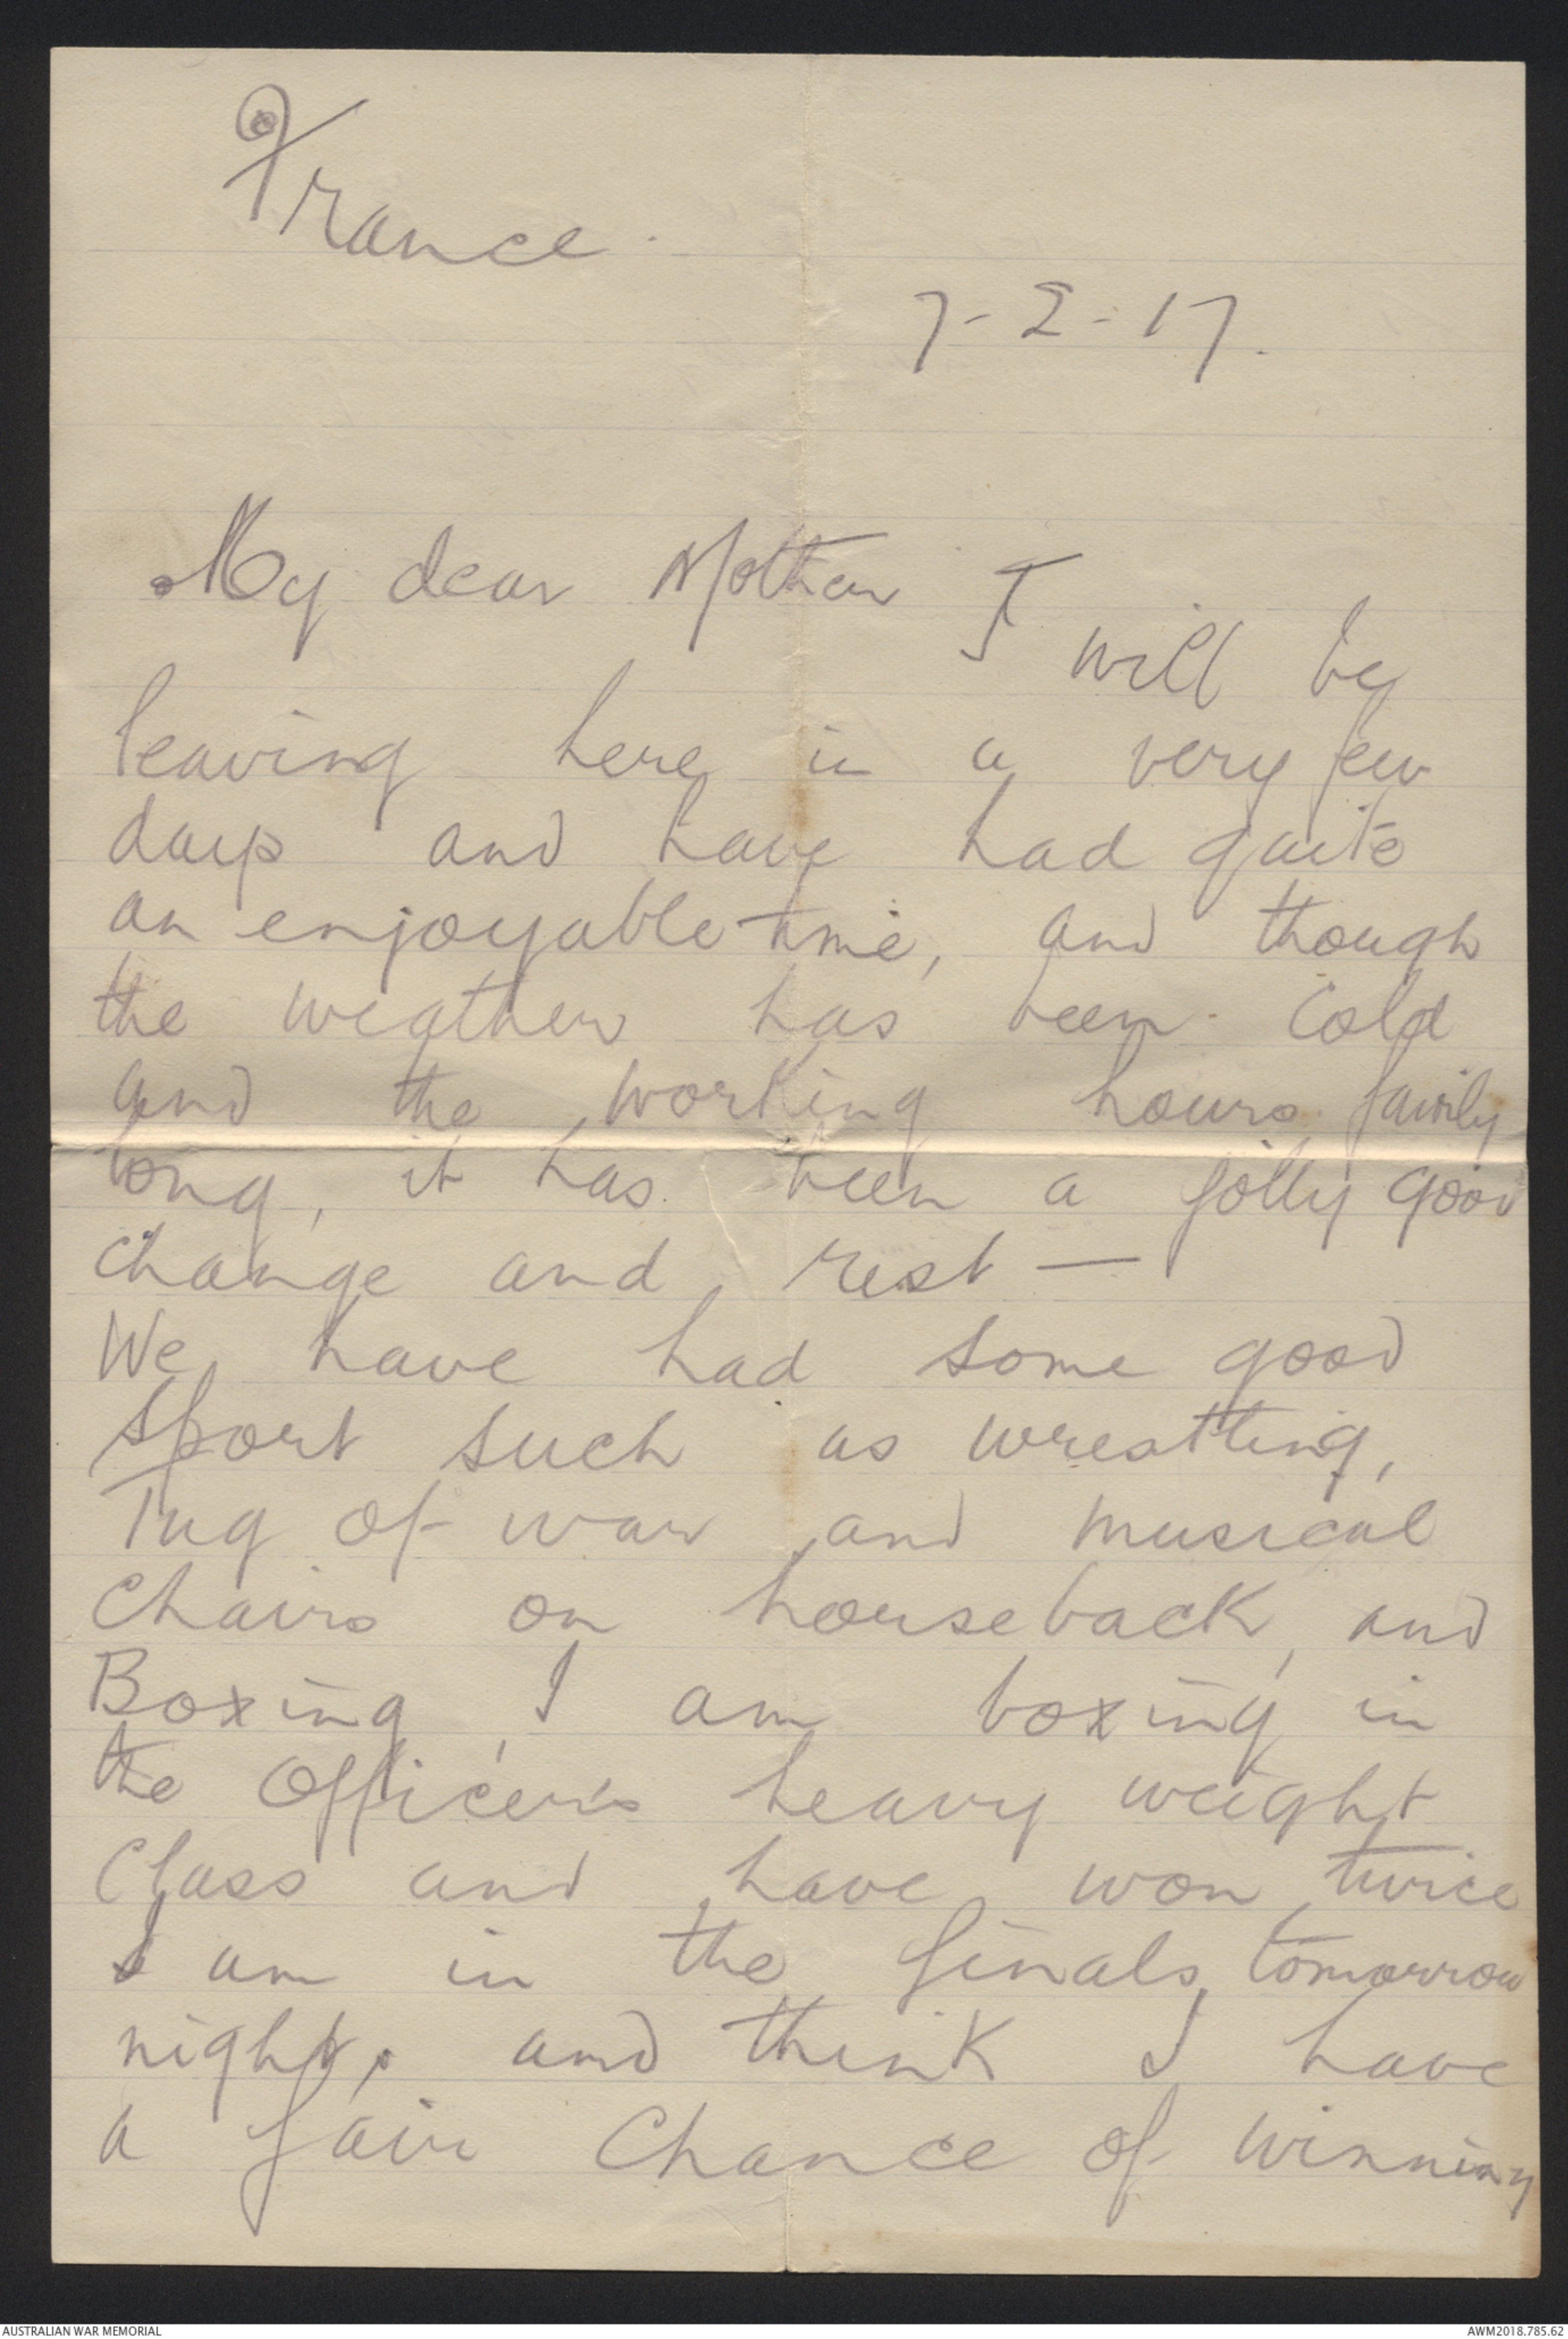 France.
7-2-17.
My dear Mother I will be
leaving here in a very few
days and have had quite
an enjoyable time, and though
the weather has been cold
and the working hours fairly
long, it has been a jolly good
change and rest —
We have had some good
sport such as wrestling,
Tug of war and musical
Chairs on horseback, and
Boxing, I am boxing in
the Officer's heavy weight
Class and have won twice
I am in the finals, tomorrow
night, and think I have
a fair Chance of winning
AUSTRALIAN WAR MEMORIAL
AWM2018.785.62